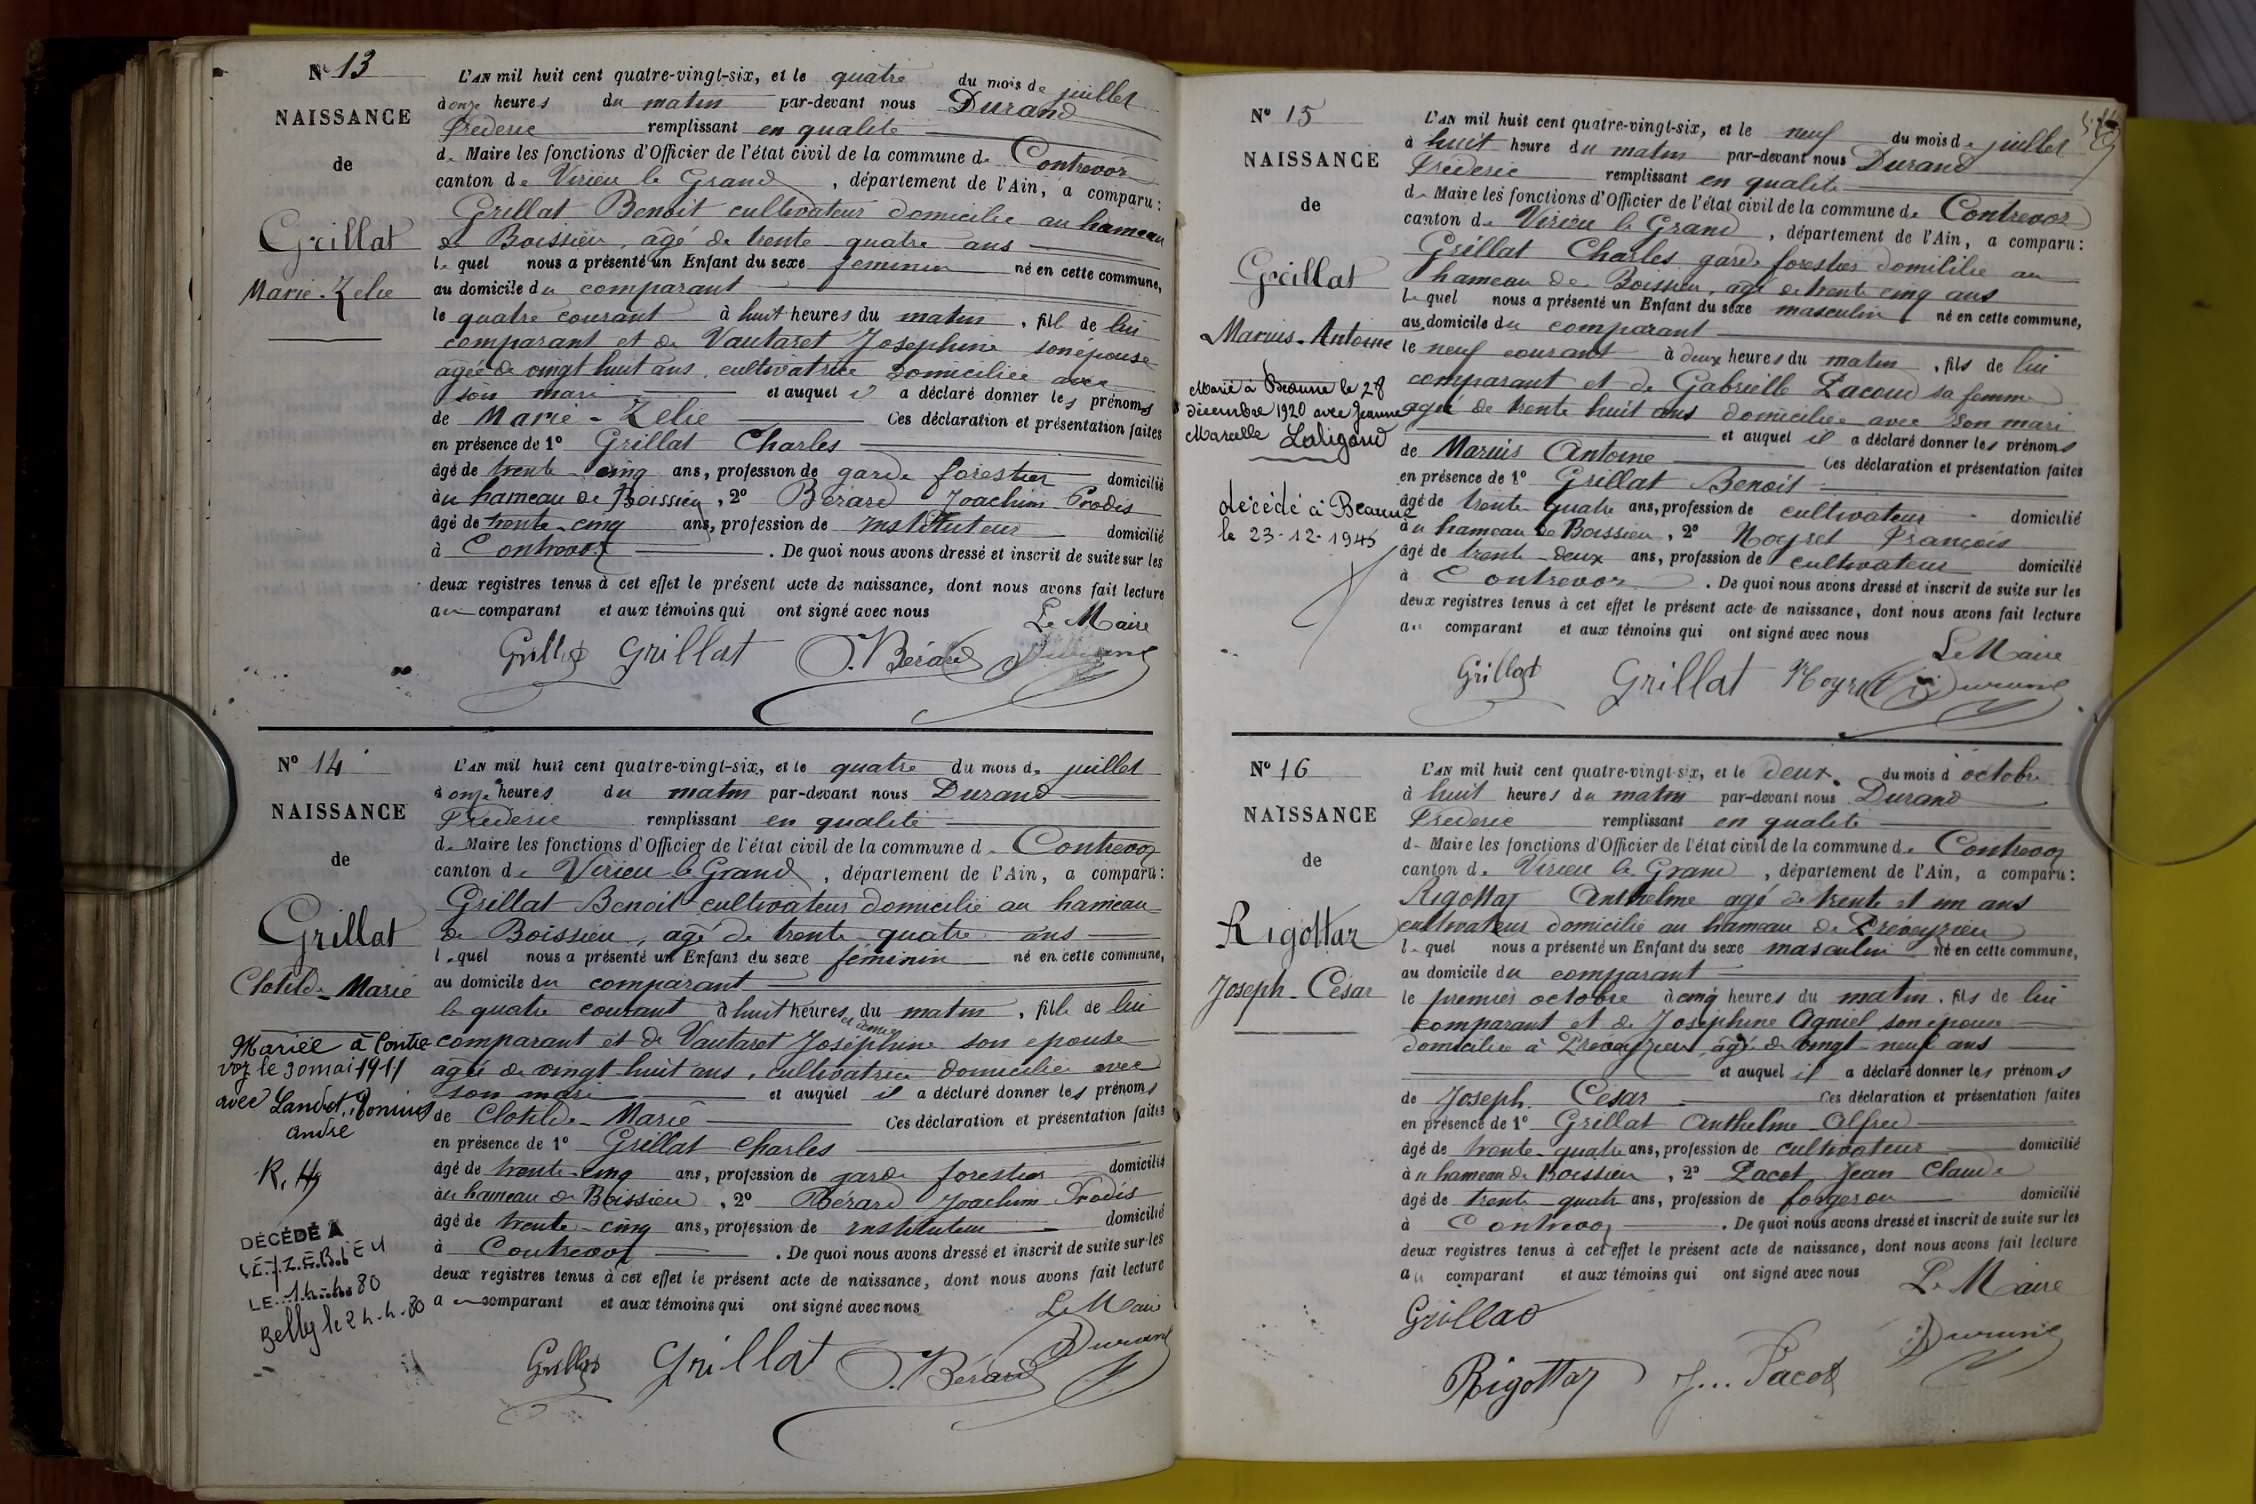 N° 13
NAISSANCE
de
Grillat
Marie-Zelie
L'AN mil huit cent quatre-vingt-six, et le quatre du mois de juillet
à onze heures du matin par-devant nous Durand
Frederic remplissant en qualité
de Maire les fonctions d'Officier de l'état civil de la commune de Contrevoz
canton de Virieu le Grand, département de l'Ain, a comparu:
Grillat Benoit cultivateur domicilié au hameau
de Boissieu, âgé de trente quatre ans
lequel nous a présenté un Enfant du sexe féminin né en cette commune,
au domicile du comparant
le quatre courant à huit heures du matin, fille de lui
comparant et de Vautaret Josephine son épouse
agée de vingt huit ans, cultivatrice domiciliée avec
son mari et auquel il a déclaré donner les prénoms
de Marie-Zelie Ces déclaration et présentation faites
en présence de 1° Grillat Charles
âgé de trente-cinq ans, profession de garde forestier domicilié
au hameau de Boissieu, 2° Bérard Joachim Prodis
âgé de trente-cinq ans, profession de instituteur domicilié
à Contrevoz. De quoi nous avons dressé et inscrit de suite sur les
deux registres tenus à cet effet le présent acte de naissance, dont nous avons fait lecture
au comparant et aux témoins qui ont signé avec nous
Le Maire
Grillat Grillat J. Bérard Durand
N° 14
NAISSANCE
de
Grillat
Clotilde-Marie
Mariée à Contre
voz le 30 mai 1911
avec Landet,
andré
R. H
DÉCÉDÉ À
CEYZERIEU
LE 14.4.80
Belley le 24-4-80
L'AN mil huit cent quatre-vingt-six, et le quatre du mois de juillet
à onze heures du matin par-devant nous Durand
Frederic remplissant en qualité
de Maire les fonctions d'Officier de l'état civil de la commune de Contrevoz
canton de Virieu le Grand, département de l'Ain, a comparu:
Grillat Benoit cultivateur domicilié au hameau
de Boissieu, agé de trente quatre ans
lequel nous a présenté un Enfant du sexe féminin né en cette commune,
au domicile du comparant
le quatre courant à huit heures et demie du matin, fille de lui
comparant et de Vautaret Joséphine son epouse
agée de vingt-huit ans, cultivatrice domiciliée avec
son mari et auquel il a déclaré donner les prénoms
de Clotilde-Marie Ces déclaration et présentation faites
en présence de 1° Grillat Charles
âgé de trente-cinq ans, profession de garde forestier domicilié
au hameau de Boissieu, 2° Bérard Joachim Prodis
âgé de trente-cinq ans, profession de instituteur domicilié
à Contrevoz. De quoi nous avons dressé et inscrit de suite sur les
deux registres tenus à cet effet le présent acte de naissance, dont nous avons fait lecture
au comparant et aux témoins qui ont signé avec nous
Le Maire
Grillat Grillat J. Bérard Durand
N° 15
NAISSANCE
de
Grillat
Marius-Antoine
Marié à Beaune le 28
décembre 1920 avec Jeanne
Marcelle Laligand
décédé à Beaune
le 23-12-1945
L'AN mil huit cent quatre-vingt-six, et le neuf du mois de juillet
à huit heure du matin par-devant nous Durand
Frederic remplissant en qualité
de Maire les fonctions d'Officier de l'état civil de la commune de Contrevoz
canton de Virieu le Grand, département de l'Ain, a comparu:
Grillat Charles garde forestier domicilié au
hameau de Boissieu, âgé de trente cinq ans
lequel nous a présenté un Enfant du sexe masculin né en cette commune,
au domicile du comparant
le neuf courant à deux heures du matin, fils de lui
comparant et de Gabrielle Lacour sa femme
agée de trente huit ans domiciliée avec son mari
et auquel il a déclaré donner les prénoms
de Marius Antoine Ces déclaration et présentation faites
en présence de 1° Grillat Benoit
âgé de trente quatre ans, profession de cultivateur domicilié
au hameau de Boissieu, 2° Noyret François
âgé de trente-deux ans, profession de cultivateur domicilié
à Contrevoz. De quoi nous avons dressé et inscrit de suite sur les
deux registres tenus à cet effet le présent acte de naissance, dont nous avons fait lecture
au comparant et aux témoins qui ont signé avec nous
Le Maire
Grillat Grillat Noyret Durand
N° 16
NAISSANCE
de
Rigottaz
Joseph-César
L'AN mil huit cent quatre-vingt-six, et le deux du mois d'octobre
à huit heures du matin par-devant nous Durand
Frederic remplissant en qualité
de Maire les fonctions d'Officier de l'état civil de la commune de Contrevoz
canton de Virieu le Grand, département de l'Ain, a comparu:
Rigottaz Anthelme agé de trente et un ans
cultivateur domicilié au hameau de Préveyzieu
lequel nous a présenté un Enfant du sexe masculin né en cette commune,
au domicile du comparant
le premier octobre à cinq heures du matin, fils de lui
comparant et de Joséphine Agniel son épouse
domiciliée à Préveyzieu, âgée de vingt-neuf ans
et auquel il a déclaré donner les prénoms
de Joseph César Ces déclaration et présentation faites
en présence de 1° Grillat Anthelme Alfred
âgé de trente-quatre ans, profession de cultivateur domicilié
au hameau de Boissieu, 2° Pacot Jean Claude
âgé de trente-quatre ans, profession de forgeron domicilié
à Contrevoz. De quoi nous avons dressé et inscrit de suite sur les
deux registres tenus à cet effet le présent acte de naissance, dont nous avons fait lecture
au comparant et aux témoins qui ont signé avec nous
Le Maire
Grillat
Rigottaz J... Pacot Durand